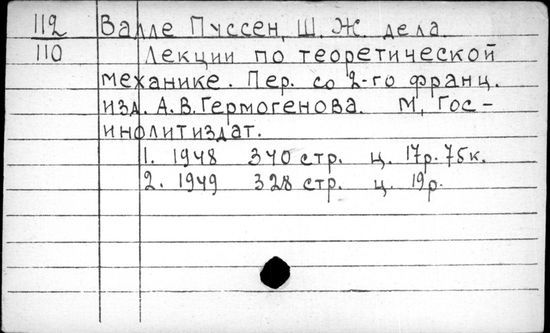 112 Валле Пуссен, Ш. Ж. дела.
110 Лекции по теоретической
механике. Пер. со 2-го франц.
изд. А.В.Гермогенова. М, Гос-
инолитиздат.
1. 1948 340 стр. ц. 17р. 75к.
2. 1949 328 стр. ц. 19р.